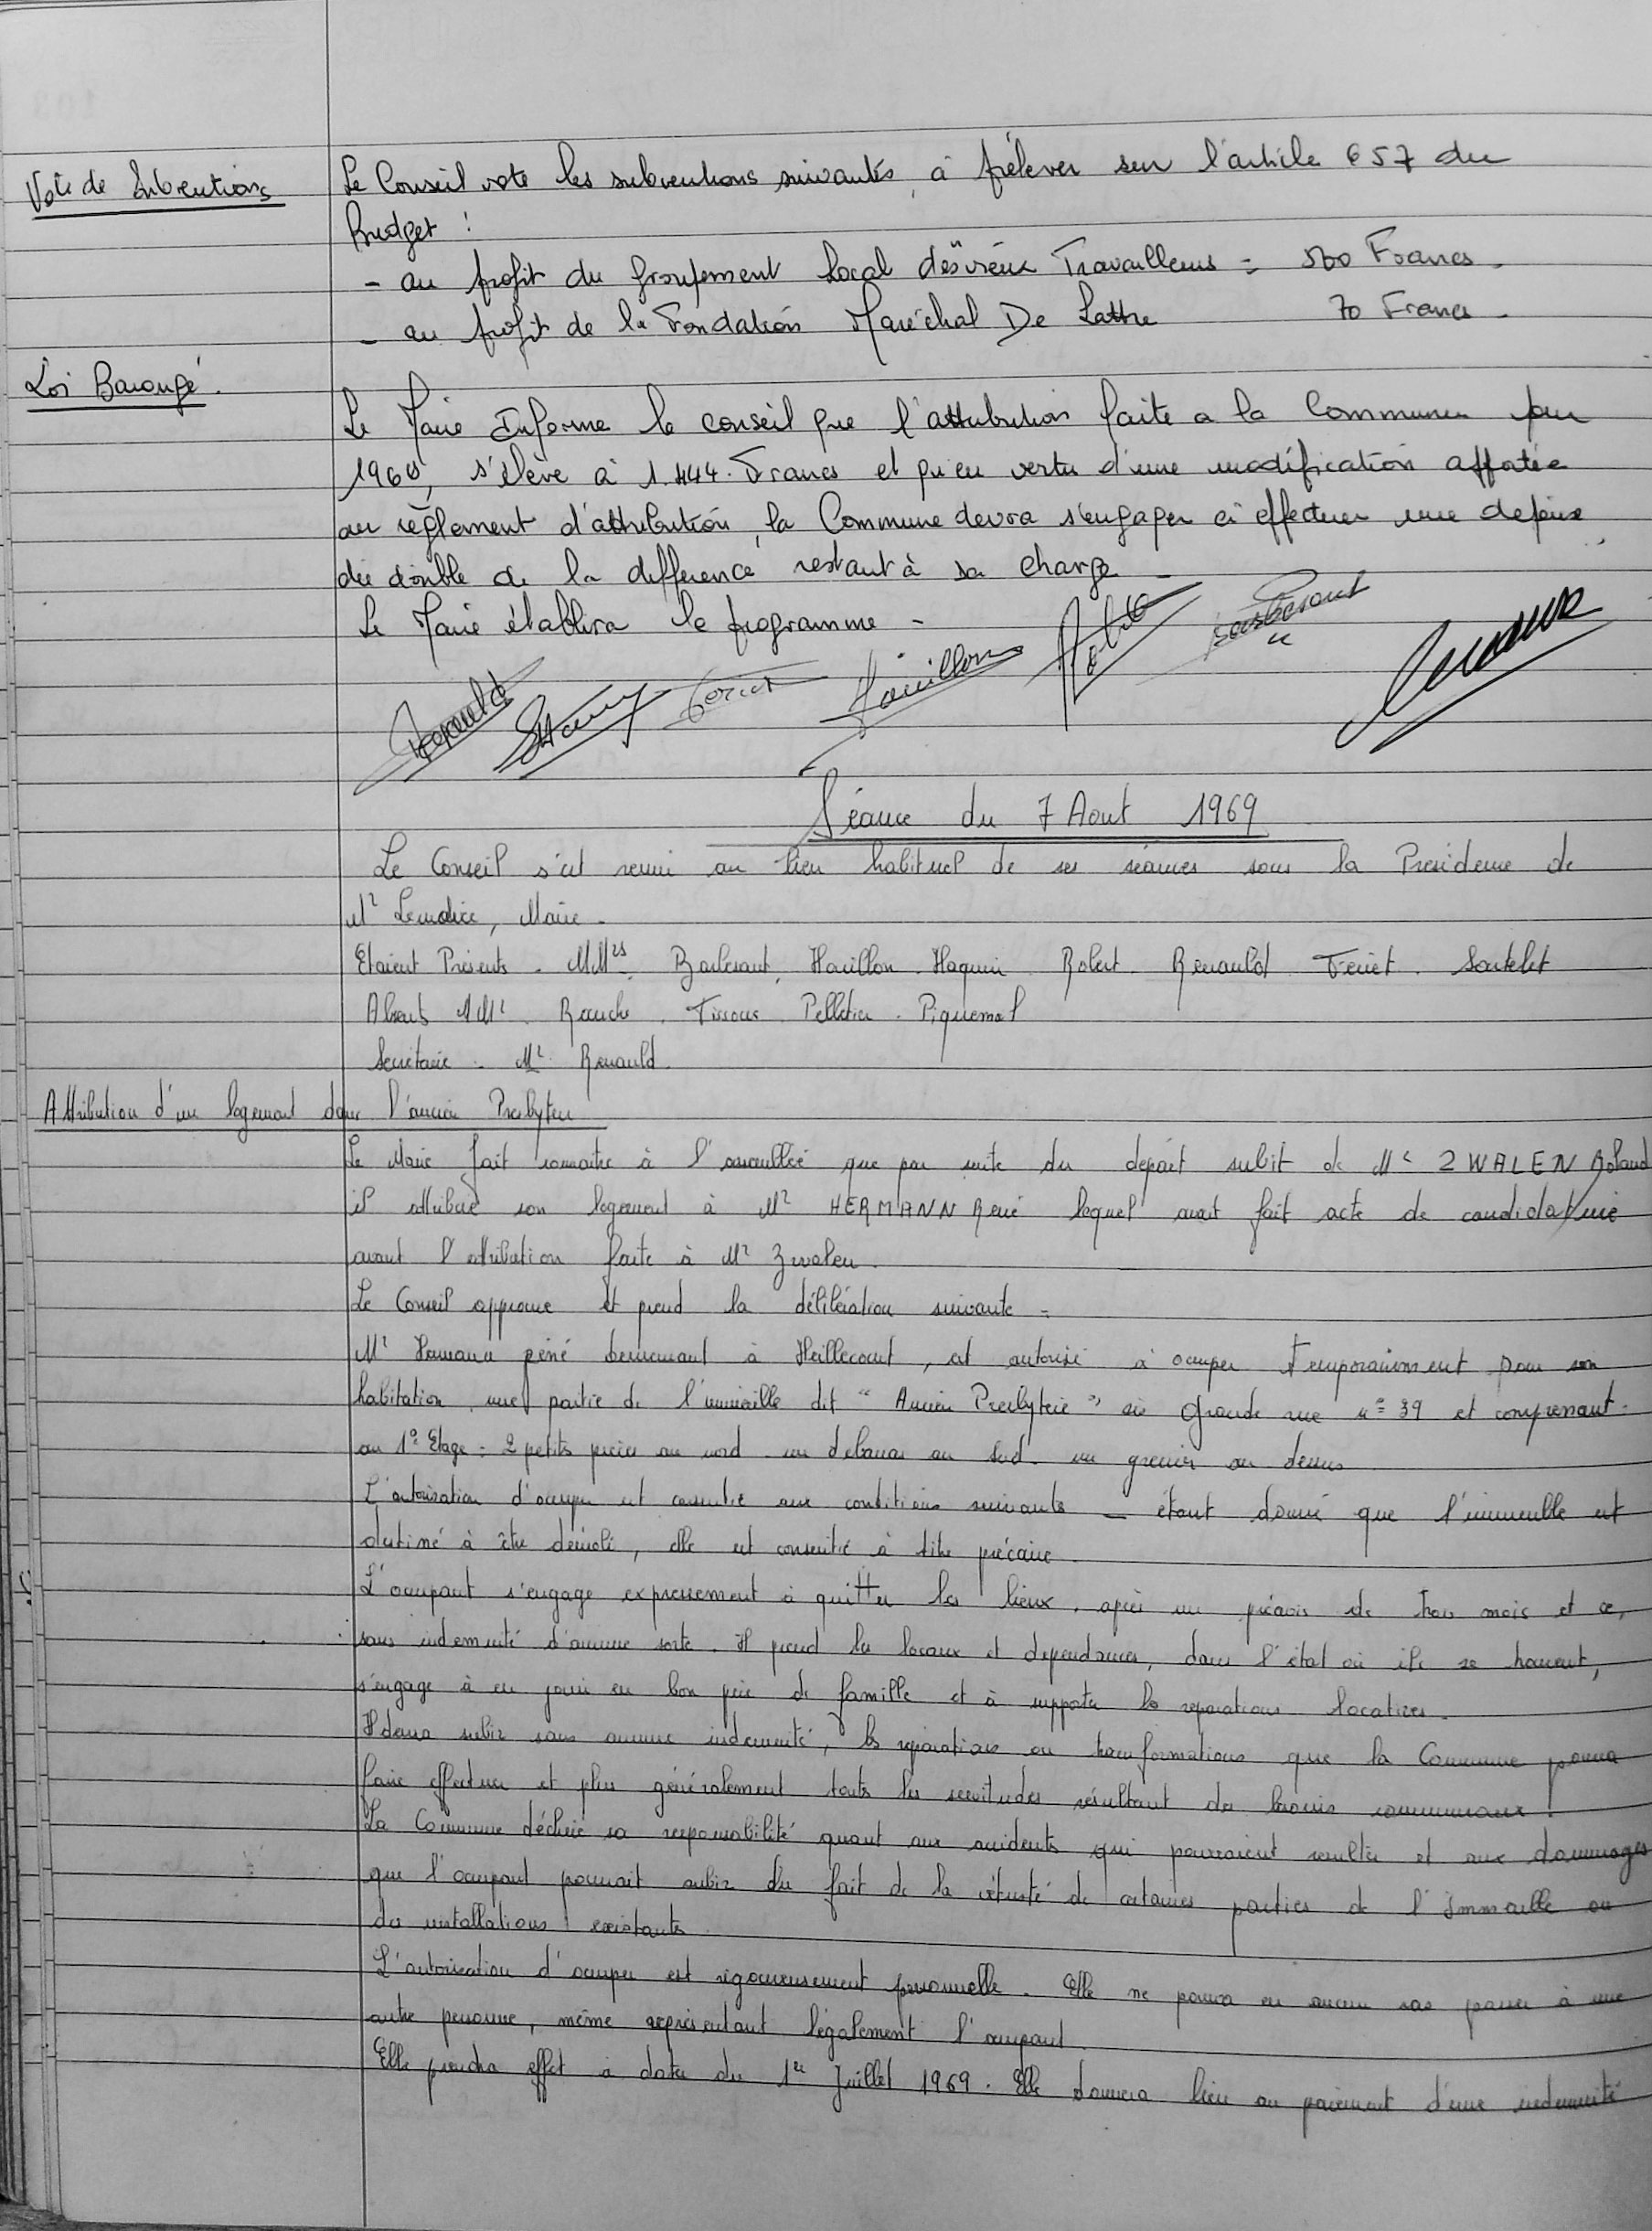 Vote de Subventions
Le Conseil vote les subventions suivantes, à prélever sur l'article 657 du
Budget :
- au profit du Groupement Local des Vieux Travailleurs = 500 Francs -
- au profit de la Fondation Maréchal De Lattre 70 Francs -
Loi Barangé.
Le Maire Informe le conseil que l'attribution faite a la Commune pour
s'élève à 1.444. Francs et qu'en vertu d'une modification apportée
au règlement d'attribution, la Commune devra s'engager à effectuer une depense
du double de la différence restant à sa charge -
Le Maire établira le programme -
Séance du 7 Aout 1969
Le Conseil s'est reuni au lieu habituel de ses séances sous la Presidence de
Mr Lemaire, Maire -
Etaient Présents - MMrs Barbesant, Houillon - Haquin Robert - Renauld Feriet - Sautelet
Absents MMr. Rouche - Tissous Pelletier - Piquemal
Secrétaire - Mr Renauld.
Attribution d'un logement dans l'ancien Presbytere
Le Maire fait connaitre à l'assemblée que par suite du départ subit de Mr ZWALEN Roland
il attribue son logement à Mr HERMANN René lequel avait fait acte de candidature
avant l'attribution faite à Mr Zwalen.
Le Conseil approuve et prend la délibération suivante =
Mr Hermann René demeurant à Heillecourt, est autorisé à occuper temporairement pour son
habitation une partie de l'immeuble dit "Ancien Presbytère" sis Grande rue n° 39 et comprenant :
au 1° Etage = 2 petites pièces au nord - un debarras au Sud - un grenier au dessus
L'autorisation d'occuper est consentie aux conditions suivantes - étant donné que l'immeuble est
destiné à être démoli, elle est consentie à titre précaire.
L'occupant s'engage expressement à quitter les lieux, après un préavis de trois mois et ce,
sans indemnité d'aucune sorte. Il prend les locaux et dependances, dans l'état où ils se trouvent,
s'engage à en jouir en bon père de famille et à supporter les reparations locatives.
Il devra subir sans aucune indemnité, les réparations ou transformations que la Commune pourra
faire effectuer et plus généralement toutes les servitudes résultant des besoins communaux.
La Commune décline sa responsabilité quant aux accidents qui pourraient resulter et aux dommages
que l'occupant pourrait subir du fait de la vétusté de certaines parties de l'Immeuble ou
des installations existantes.
L'autorisation d'occuper est rigoureusement personnelle. Elle ne pourra en aucun cas passer à une
autre personne, même représentant légalement l'occupant.
Elle prendra effet à dater du 1er Juillet 1969. Elle donnera lieu au paiement d'une indemnité